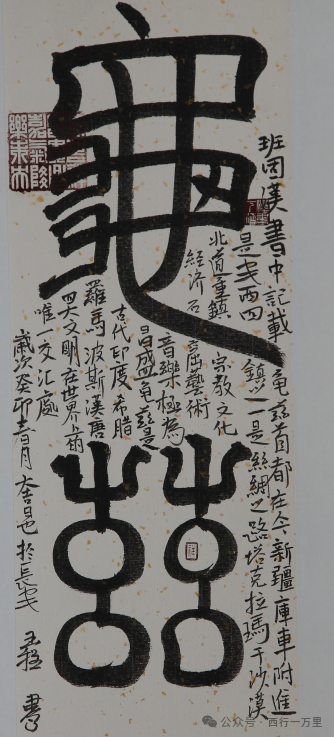 龜兹
班固漢書中記載龜兹首都在今新疆庫車附進
是安西四鎮之一是絲綢之路塔克拉瑪干沙漠
北道重鎮宗教文化
经济石窟藝術
音樂極為
昌盛龜兹是
古代印度希腊
羅馬波斯漢唐
四大文明在世界上的
唯一交汇處
歲次癸卯春月於長安
書
公众号·西行一万里